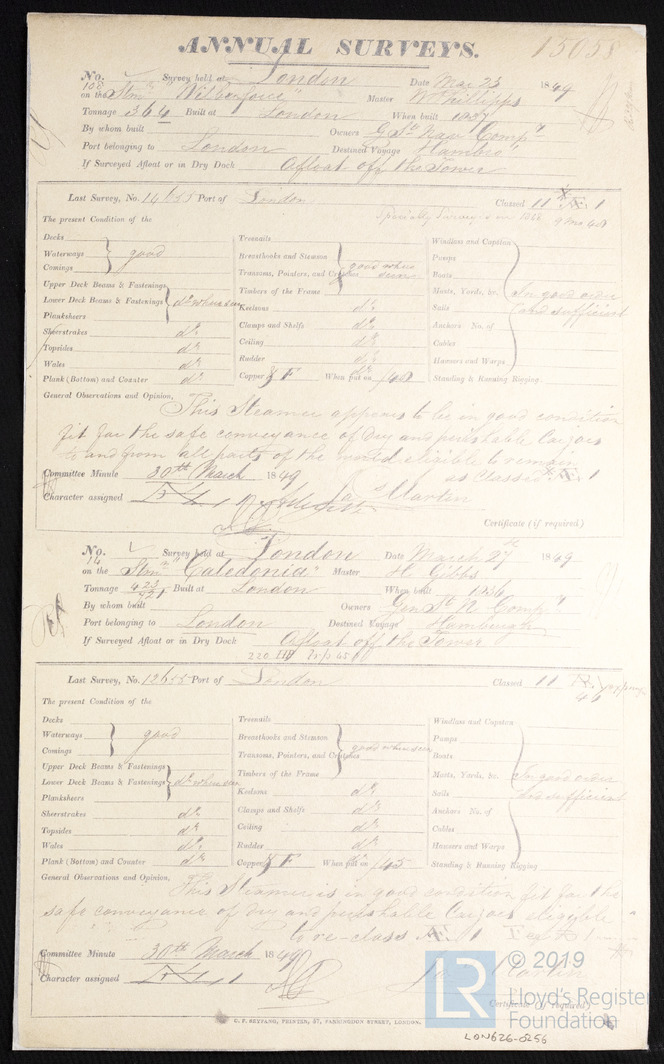 ANNUAL SURVEYS. 15058
No. 108 Survey held at London Date Mar 23 1849
on the Stmr "Wilberforce" Master W Phillipps
Tonnage 364 Built at London When built 1837
By whom built Owners Genl St. Nav. Compy
Port belonging to London Destined Voyage Hambro'
If Surveyed Afloat or in Dry Dock Afloat off the Tower
Last Survey, No. Port of London Classed 11 Æ 1
Specially Surveyed in
The present Condition of the
Decks
Waterways good
Comings
Upper Deck Beams & Fastenings
Lower Deck Beams & Fastenings do. when seen
Planksheers
Sheerstrakes do.
Topsides do.
Wales do.
Plank (Bottom) and Counter do.
Treenails
Breasthooks and Stemson
Transoms, Pointers, and Crutches good when seen
Timbers of the Frame
Keelsons do.
Clamps and Shelfs do.
Ceiling do.
Rudder do.
Copper Y F When put on /48
Windlass and Capstan
Pumps
Boats
Masts, Yards, &c. In good order
Sails and sufficient
Anchors No. of
Cables
Hawsers and Warps
Standing & Running Rigging
General Observations and Opinion, This Steamer appears to be in good condition
fit for the safe conveyance of Dry and perishable Cargoes
to and from all parts of the world eligible to remain
as Classed Æ 1
Committee Minute 30th March 1849
Character assigned Jas Martin
Certificate (if required)
No. 14 Survey held at London Date March 27th 1849
on the Stmr "Caledonia" Master H. Gibbs
Tonnage Built at London When built 1836
By whom built Owners Genl St. N Compy
Port belonging to London Destined Voyage Hamburgh
If Surveyed Afloat or in Dry Dock Afloat off the Tower
Last Survey, No. 12655 Port of London Classed 11 Æ 1
46
The present Condition of the
Decks
Waterways good
Comings
Upper Deck Beams & Fastenings
Lower Deck Beams & Fastenings do. when seen
Planksheers
Sheerstrakes do.
Topsides do.
Wales do.
Plank (Bottom) and Counter do.
Treenails
Breasthooks and Stemson
Transoms, Pointers, and Crutches good when seen
Timbers of the Frame
Keelsons do.
Clamps and Shelfs do.
Ceiling do.
Rudder do.
Copper Y F When put on /45
Windlass and Capstan
Pumps
Boats
Masts, Yards, &c. In good order
Sails and sufficient
Anchors No. of
Cables
Hawsers and Warps
Standing & Running Rigging
General Observations and Opinion, This Steamer is in good condition fit for the
safe conveyance of dry and perishable Cargoes eligible
to re-class Æ 1
Committee Minute 30th March 1849
Character assigned Jas Martin
Certificate (if required)
G. F. SEYFANG, PRINTER, 57, FARRINGDON STREET, LONDON.
LR © 2019
Lloyd's Register
Foundation
LON626-0256